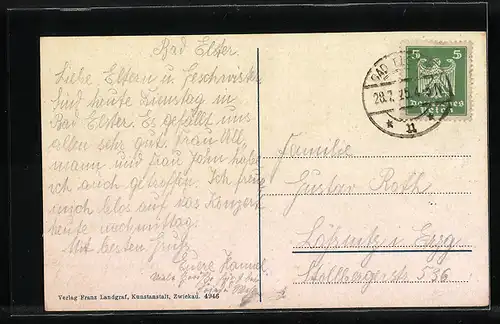 Bad Elster.
Liebe Eltern u. Geschwister
Sind heute Dienstag in
Bad Elster. Es gefällt uns
allen sehr gut. Frau Oll-
mann und Frau Jahn habe
ich auch getroffen. Ich freue
mich selos auf das Konzert
heute nachmittag.
Mit besten Gruß
Euere
Verlag Franz Landgraf, Kunstanstalt, Zwickau. 4946
5 5
Deutsches
Reich
BAD ELSTER
28.7.25
* n *
Familie
Gustav Roth
Lößnitz i. Erzg.
Stollbergerstr. 536